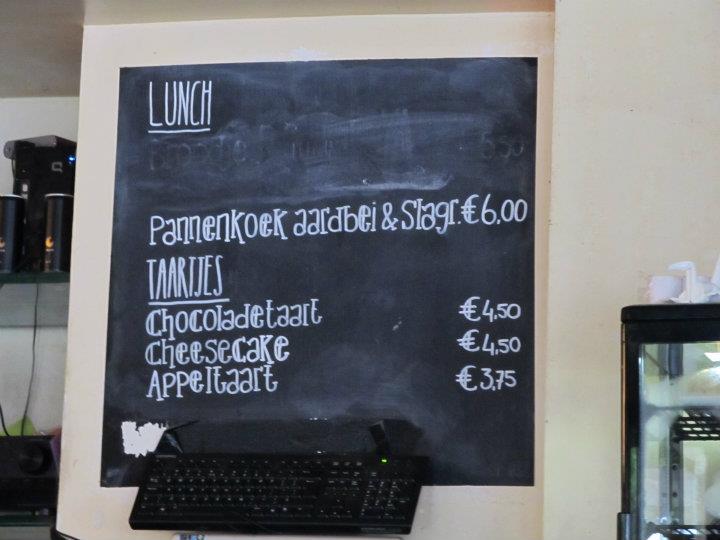 LUNCH
Pannenkoek aardbei & Slagr. €6,00
TAARTJES
Chocoladetaart €4,50
Cheesecake €4,50
Appeltaart €3,75